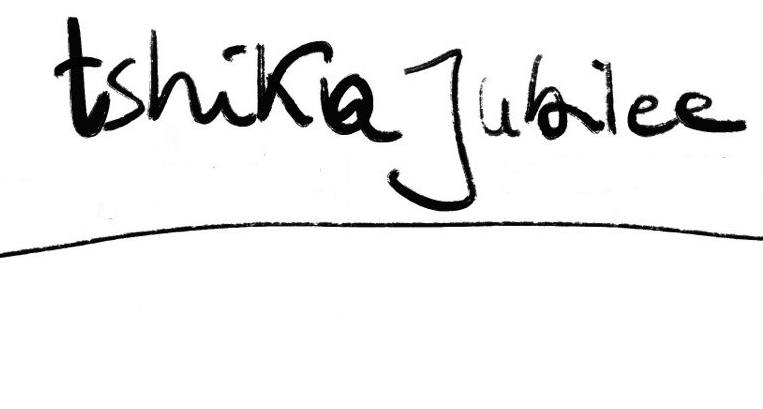 tshika Jubilee